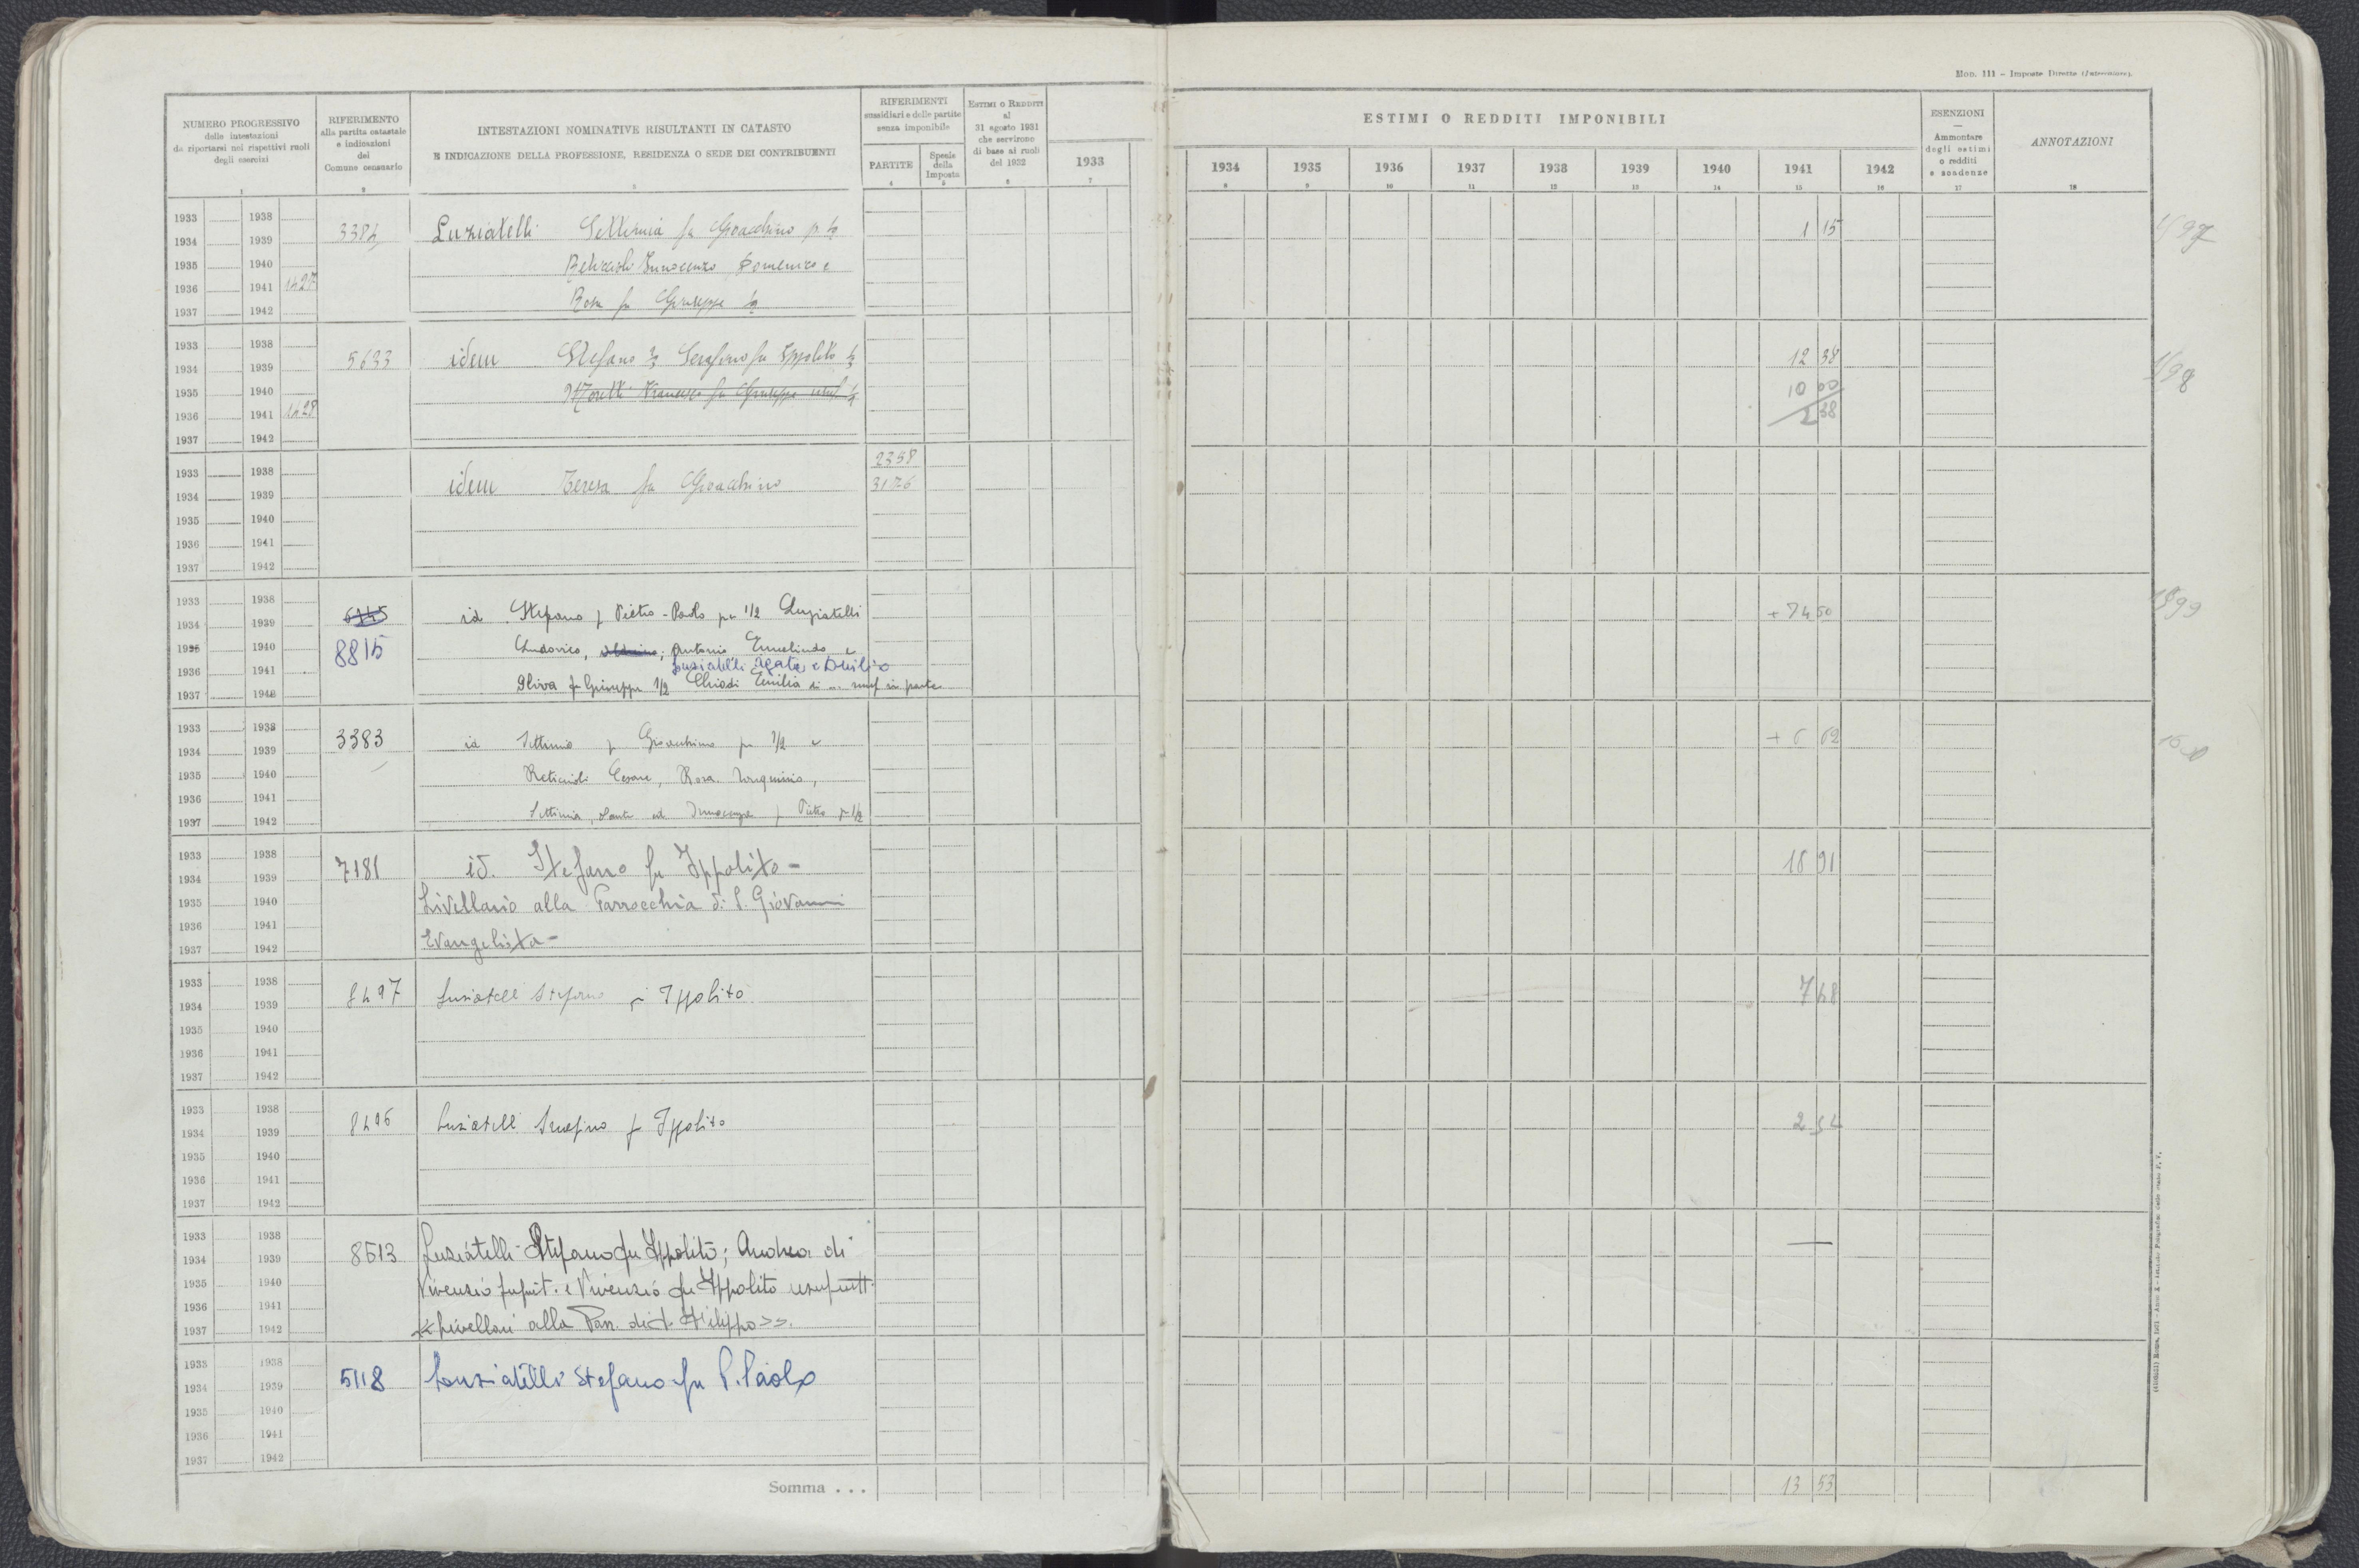 Mod. 111 – Imposte Dirette (Intercalare).
NUMERO PROGRESSIVO
delle intestazioni
da riportarsi nei rispettivi ruoli
degli esercizi
1
RIFERIMENTO
alla partita catastale
e indicazioni
del
Comune censuario
2
INTESTAZIONI NOMINATIVE RISULTANTI IN CATASTO
E INDICAZIONE DELLA PROFESSIONE, RESIDENZA O SEDE DEI CONTRIBUENTI
3
RIFERIMENTI
sussidiari e delle partite
senza imponibile
PARTITE
4
Specie
della
Imposta
5
ESTIMI O REDDITI
al
31 agosto 1931
che servirono
di base ai ruoli
del 1932
6
1933
7
ESTIMI O REDDITI IMPONIBILI
1934 1935 1936 1937 1938 1939 1940 1941 1942
8 9 10 11 12 13 14 15 16
ESENZIONI
—
Ammontare
degli estimi
o redditi
e scadenze
17
ANNOTAZIONI
18
1933 1938
1934 1939 3384 Luziatelli Settimia fu Gioacchino p. 1/2 1 15
1935 1940 Innocenzo Domenico e
1936 1941 1427 Rosa fu Giuseppe 1/2
1937 1942
1933 1938
1934 1939 5633 idem Stefano Serafino fu Ippolito 12 38
1935 1940 Francesco fu Giuseppe 10 00
1936 1941 1428 2 38
1937 1942
1933 1938 2358
1934 1939 idem Teresa fu Gioacchino 3176
1935 1940
1936 1941
1937 1942
1933 1938
1934 1939 id. Stefano f Pietro-Paolo per 1/2 Luziatelli + 74 50
1935 1940 8815 Ludovico, Antonio Ermelindo e
1936 1941 Luziatelli Agata e Duilio
1937 1942 Oliva fu Giuseppe 1/2 Chiodi Emilia di ... usuf in parte
1933 1938
1934 1939 3383 id Settimio f Gioacchino per 1/2 e + 6 62
1935 1940 Reticcioli Cesare, Rosa,
1936 1941
1937 1942 Settimia, Sante ed Innocenza f Pietro p 1/2
1933 1938
1934 1939 7181 id. Stefano fu Ippolito - 18 91
1935 1940 Livellario alla Parrocchia di S. Giovanni
1936 1941
1937 1942 Evangelista -
1933 1938
1934 1939 8497 Luziatelli Stefano fu Ippolito 7 48
1935 1940
1936 1941
1937 1942
1933 1938
1934 1939 8496 Luziatelli Serafino f Ippolito 2 54
1935 1940
1936 1941
1937 1942
1933 1938
1934 1939 8513 Luziatelli Stefano fu Ippolito; Andrea di —
1935 1940 Vivenzio e Vivenzio fu Ippolito usufrutt.
1936 1941
1937 1942 << livellari alla Parr. di S. Filippo >>.
1933 1938
1934 1939 5118 Luziatelli Stefano fu P. Paolo
1935 1940
1936 1941
1937 1942
Somma . . . 13 53